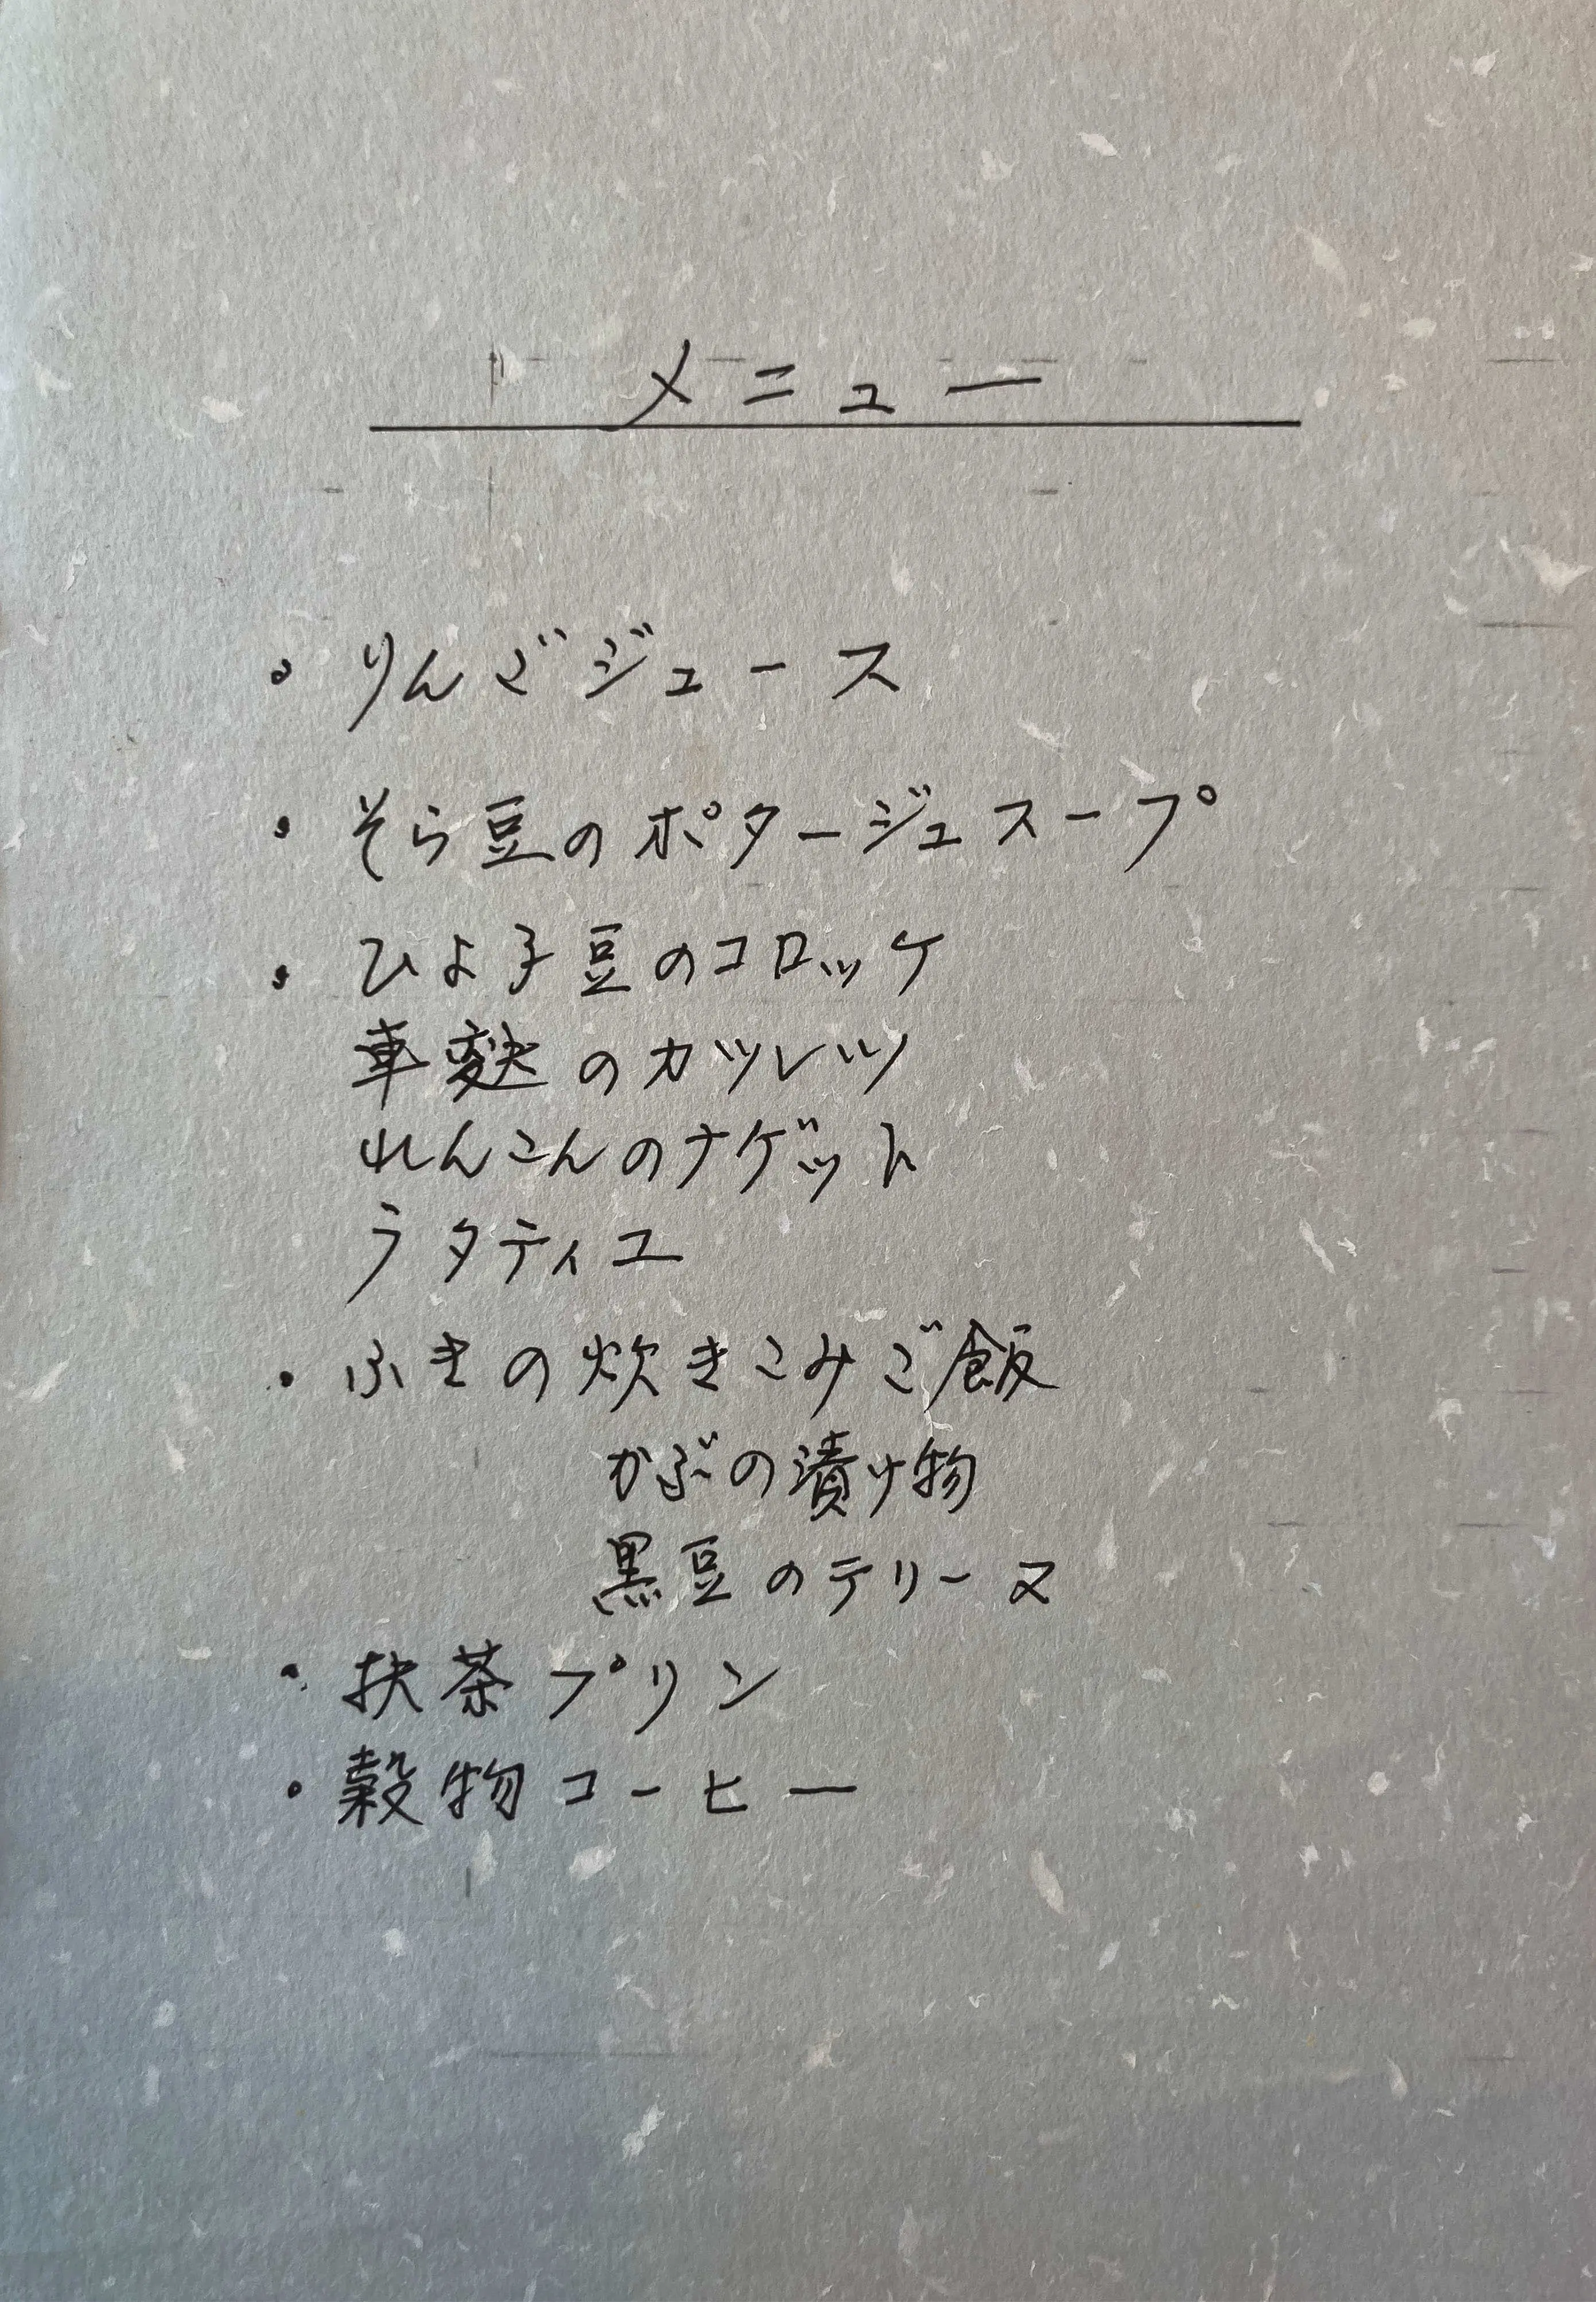 メニュー
・りんごジュース
・そら豆のポタージュスープ
・ひよ子豆のコロッケ
車麩のカツレツ
れんこんのナゲット
ラタティユ
・ふきの炊きこみご飯
かぶの漬け物
黒豆のテリーヌ
・抹茶プリン
・穀物コーヒー